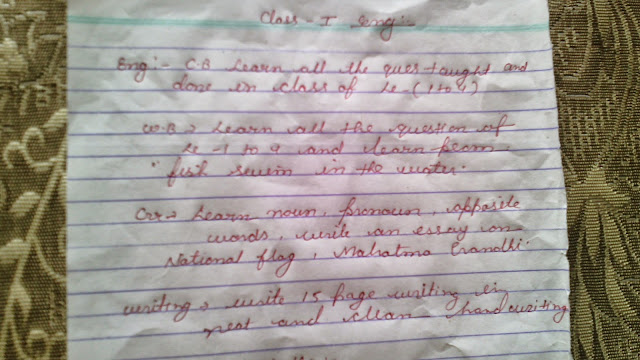 Class - I Eng :-
Eng :- C.B Learn all the ques taught and
done in class of Le - (1 to 9)
W.B → Learn all the question of
Le -1 to 9 and learn poem
" fish swim in the water.
Gr → Learn noun, pronoun, opposite
words, write an essay on
National flag, Mahatma Gandhi.
writing → write 15 page writing in
neat and clean handwriting